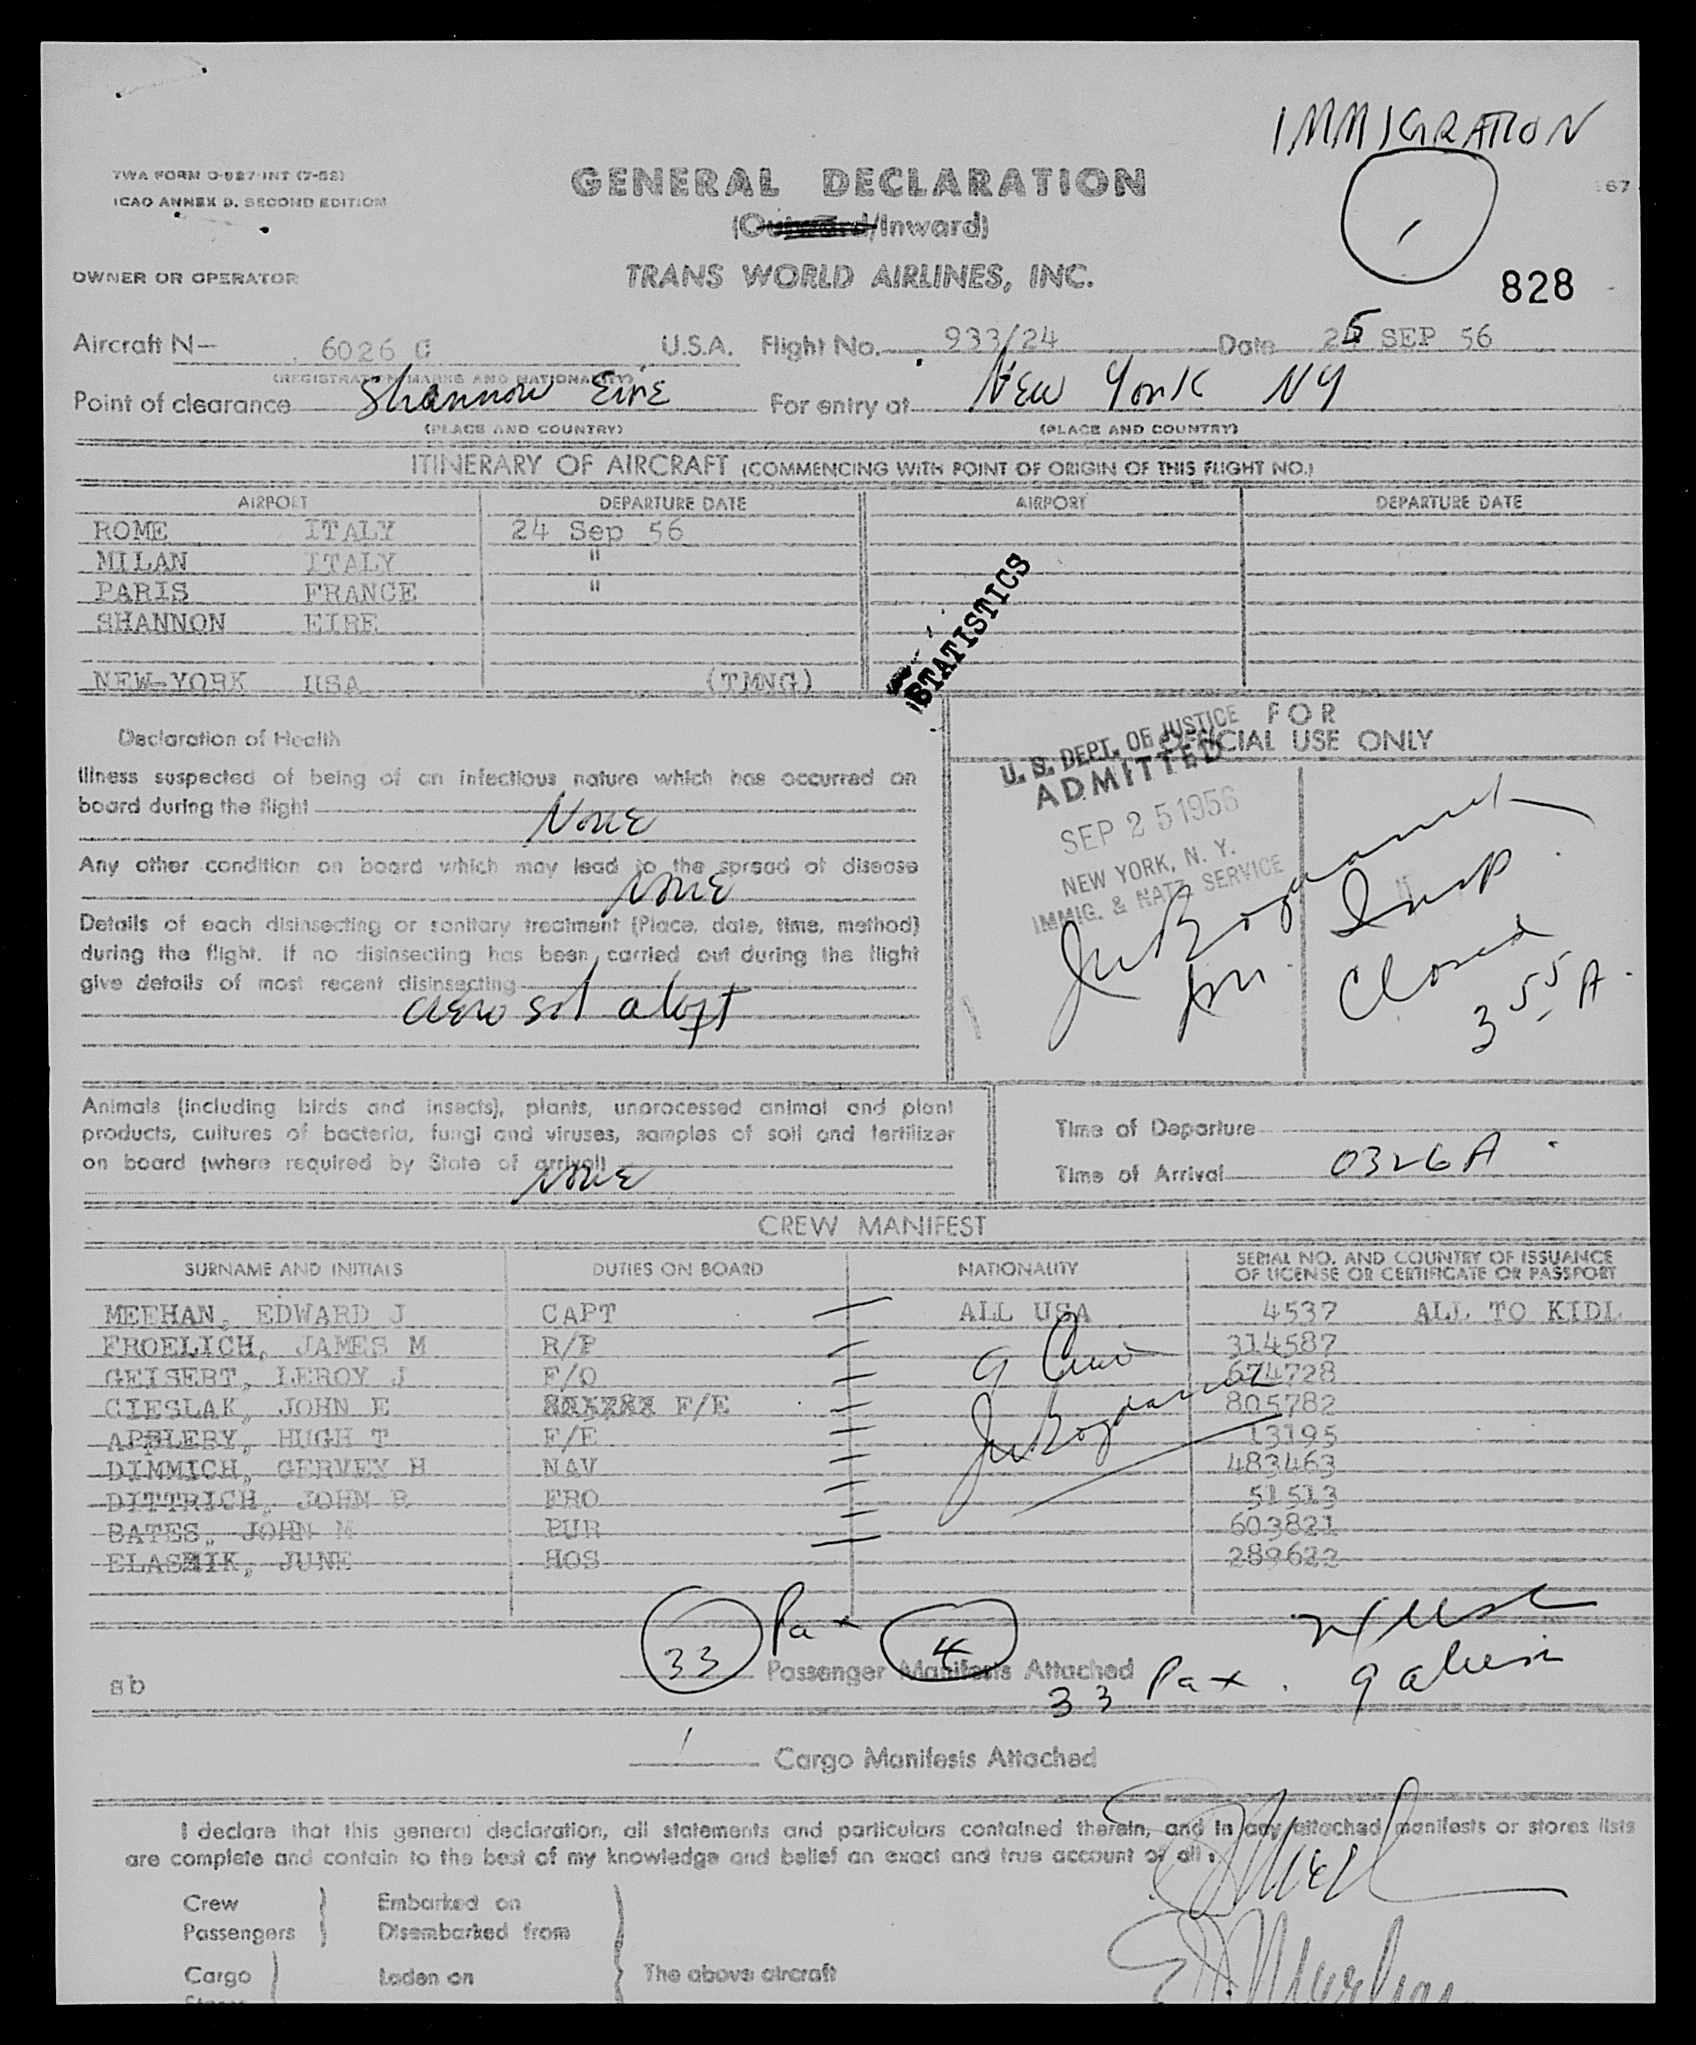 IMMIGRATION
TWA FORM O-927-INT (7-52)
GENERAL DECLARATION
1
ICAO ANNEX 9, SECOND EDITION
(Outward/Inward)
OWNER OR OPERATOR
TRANS WORLD AIRLINES, INC.
828
Aircraft N- 6026 C U.S.A. Flight No. 933/24 Date 25 SEP 56
(REGISTRATION MARKS AND NATIONALITY)
Point of clearance Shannon Eire For entry at New York NY
(PLACE AND COUNTRY) (PLACE AND COUNTRY)
ITINERARY OF AIRCRAFT (COMMENCING WITH POINT OF ORIGIN OF THIS FLIGHT NO.)
AIRPORT DEPARTURE DATE AIRPORT DEPARTURE DATE
ROME ITALY 24 Sep 56
MILAN ITALY "
PARIS FRANCE "
SHANNON EIRE
NEW-YORK USA (TMNG)
STATISTICS
Declaration of Health
Illness suspected of being of an infectious nature which has occurred on
board during the flight None
Any other condition on board which may lead to the spread of disease
None
Details of each disinsecting or sanitary treatment (Place, date, time, method)
during the flight. If no disinsecting has been carried out during the flight
give details of most recent disinsecting
aerosol aloft
FOR
OFFICIAL USE ONLY
U. S. DEPT. OF JUSTICE
ADMITTED
SEP 25 1956
NEW YORK, N. Y.
IMMIG. & NATZ. SERVICE
Insp.
Closed
3 55 A.
Animals (including birds and insects), plants, unprocessed animal and plant
products, cultures of bacteria, fungi and viruses, samples of soil and fertilizer
on board (where required by State of arrival)
None
Time of Departure
Time of Arrival 0326 A
CREW MANIFEST
SURNAME AND INITIALS DUTIES ON BOARD NATIONALITY SERIAL NO. AND COUNTRY OF ISSUANCE
OF LICENSE OR CERTIFICATE OR PASSPORT
MEEHAN, EDWARD J CAPT ALL USA 4537 ALL TO KIDL
FROELICH, JAMES M R/P 314587
GEISERT, LEROY J F/O 674728
CIESLAK, JOHN E F/E 805782
APPLEBY, HUGH T F/E 13195
DIMMICH, GERVEY H NAV 483463
DITTRICH, JOHN B FRO 51513
BATES, JOHN M PUR 603821
ELASHIK, JUNE HOS 289622
9 Crew
33 Pax 4
Passenger Manifests Attached
33 Pax.
sb
1 Cargo Manifests Attached
I declare that this general declaration, all statements and particulars contained therein, and in any attached manifests or stores lists
are complete and contain to the best of my knowledge and belief an exact and true account of all.
Crew Embarked on
Passengers Disembarked from
Cargo Laden on The above aircraft